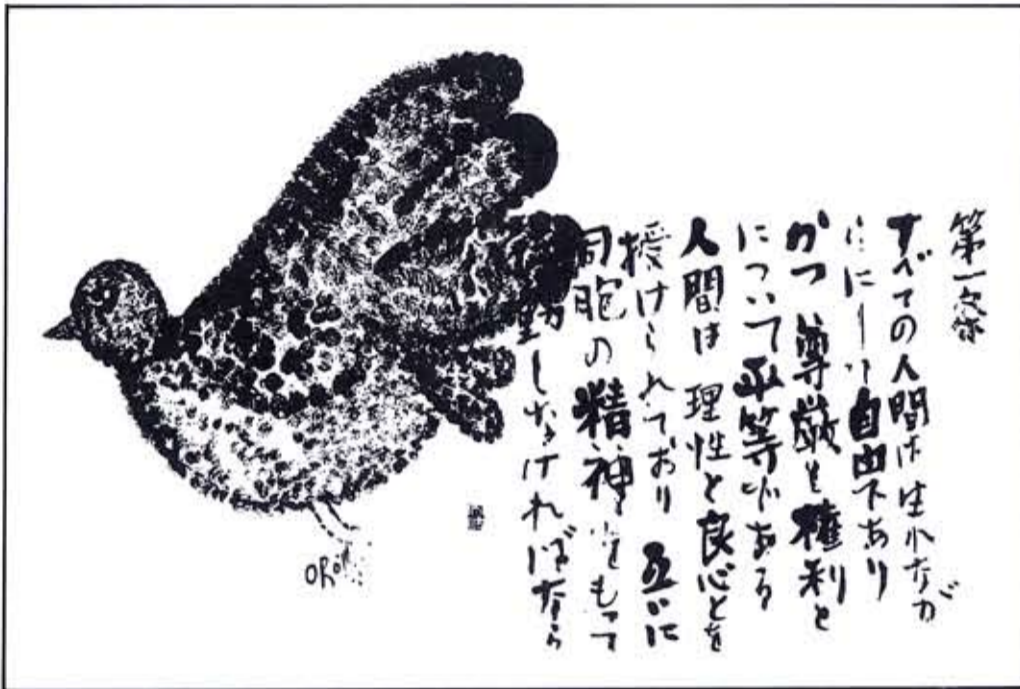 第一条
すべての人間は生れなが
らにして自由であり
かつ 尊厳と権利と
について平等である
人間は 理性と良心とを
授けられており 互いに
同胞の精神をもって
動しなければなら